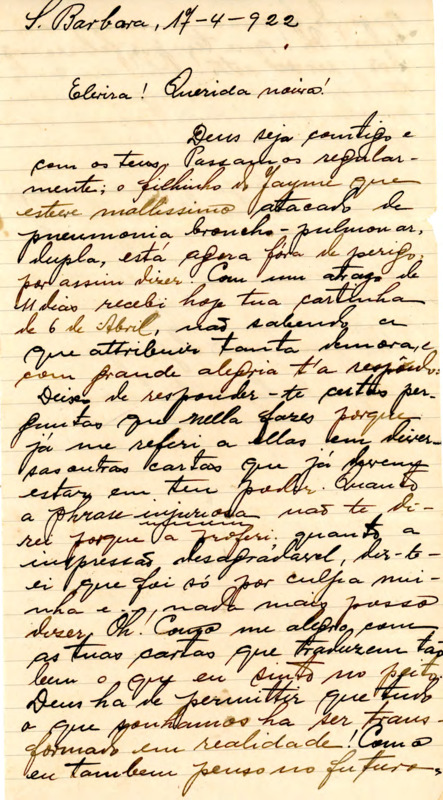 S. Barbara, 17-4-922
Elvira! Querida noiva!
Deus seja comtigo e
com os teus. Passamos regular-
mente; o filhinho do Jayme que
esteve mallissimo atacado de
pneumonia broncho-pulmonar,
dupla, está agora fóra de perigo,
por assim dizer. Com um atrazo de
11 dias recebi hoje tua cartinha
de 6 de Abril, não sabendo a
que attribuir tanta demora, e
com grande alegria t'a respondo.
Deixo de responder-te certas per-
guntas que nella fazes porque
já me referi a ellas em diver-
sas outras cartas que já devem
estar em teu poder. Quanto
a phrase injuriosa não te di-
rei porque a proferi, quanto a
impressão desagradavel, dir-te-
ei que foi só por culpa mi-
nha e..., nada mais posso
dizer. Oh! Como me alegro com
as tuas cartas que traduzem tão
bem o que eu sinto no peito.
Deus ha de permittir que tudo
o que sonhamos ha ser trans-
formado em realidade! Como
eu tambem penso no futuro